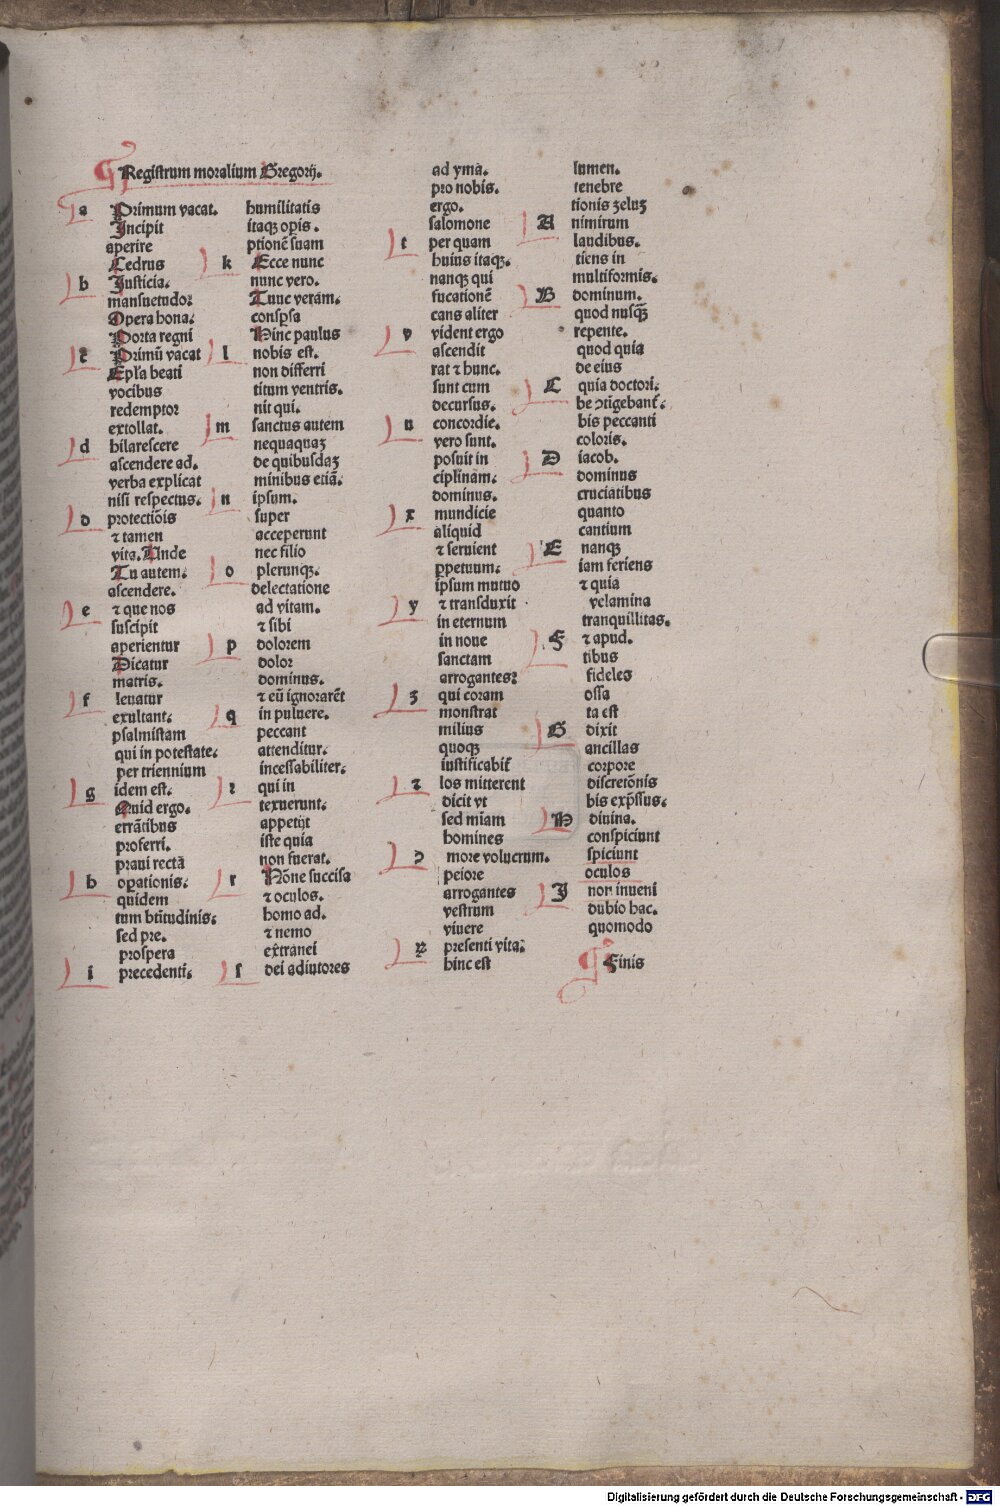 Registrum moralium Gregorij.
a Primum vacat.
Incipit
aperire
Cedrus
b Justicia.
mansuetudoꝛ
Opera bona.
Porta regni
c Primū vacat
Epl̄a beati
vocibus
redemptoꝛ
extollat.
d hilarescere
ascendere ad.
verba explicat
nisi respectus.
d protectiōis
⁊ tamen
vita. Unde
Tu autem.
ascendere.
e ⁊ que nos
suscipit
aperientur
Dicatur
matris.
f leuatur
exultant.
psalmistam
qui in potestate.
per triennium
g idem est.
Quid ergo.
errātibus
proferri.
praui rectā
h oꝑationis.
quidem
tum bt̄itudinis.
sed pre.
prospera
i precedenti.
humilitatis
itaqꝫ oꝑis.
ptionē suam
k Ecce nunc
nunc vero.
Tunc veram.
consꝑsa
Hinc paulus
l nobis est.
non differri
titum ventris.
nit qui.
m sanctus autem
nequaquaꝫ
de quibusdaꝫ
minibus etiā.
n ipsum.
super
acceperunt
nec filio
o plerunqꝫ.
delectatione
ad vitam.
⁊ sibi
p dolorem
dolor
dominus.
⁊ eū ignorarēt
q in puluere.
peccant
attenditur.
incessabiliter.
ꝛ qui in
texuerunt.
appetijt
iste quia
non fuerat.
r Nōne succisa
⁊ oculos.
homo ad.
⁊ nemo
extranei
ſ dei adiutores
ad yma.
pro nobis.
ergo.
salomone
t per quam
huius itaqꝫ.
nanqꝫ qui
fucationē
cans aliter
v vident ergo
ascendit
rat ⁊ hunc.
sunt cum
decursus.
u concordie.
vero sunt.
posuit in
ciplinam.
dominus.
x mundicie
aliquid
⁊ seruient
ꝑpetuum.
ipsum mutuo
y ⁊ transduxit
in eternum
in noue
sanctam
arrogantes?
ʒ qui coram
monstrat
milius
quoqꝫ
iustificabit̄
⁊ los mitterent
dicit vt
sed miam
homines
ꝯ more volucrum.
peiore
arrogantes
vestrum
viuere
presenti vita.
hinc est
lumen.
tenebre
tionis ʒelus
A nimirum
laudibus.
tiens in
multiformis.
B dominum.
quod nusqꝫ̄
repente.
quod quia
de eius
C quia doctori.
be ꝯtigebant̄.
bis peccanti
coloris.
D iacob.
dominus
cruciatibus
quanto
cantium
E nanqꝫ
iam feriens
⁊ quia
velamina
tranquillitas.
F ⁊ apud.
tibus
fideles
ossa
ta est
G dixit
ancillas
corpore
discretōnis
bis exp̄ssus.
H diuina.
conspiciunt
spiciunt
oculos
J non inueni
dubio hac.
quomodo
Finis
Digitalisierung gefördert durch die Deutsche Forschungsgemeinschaft - DFG